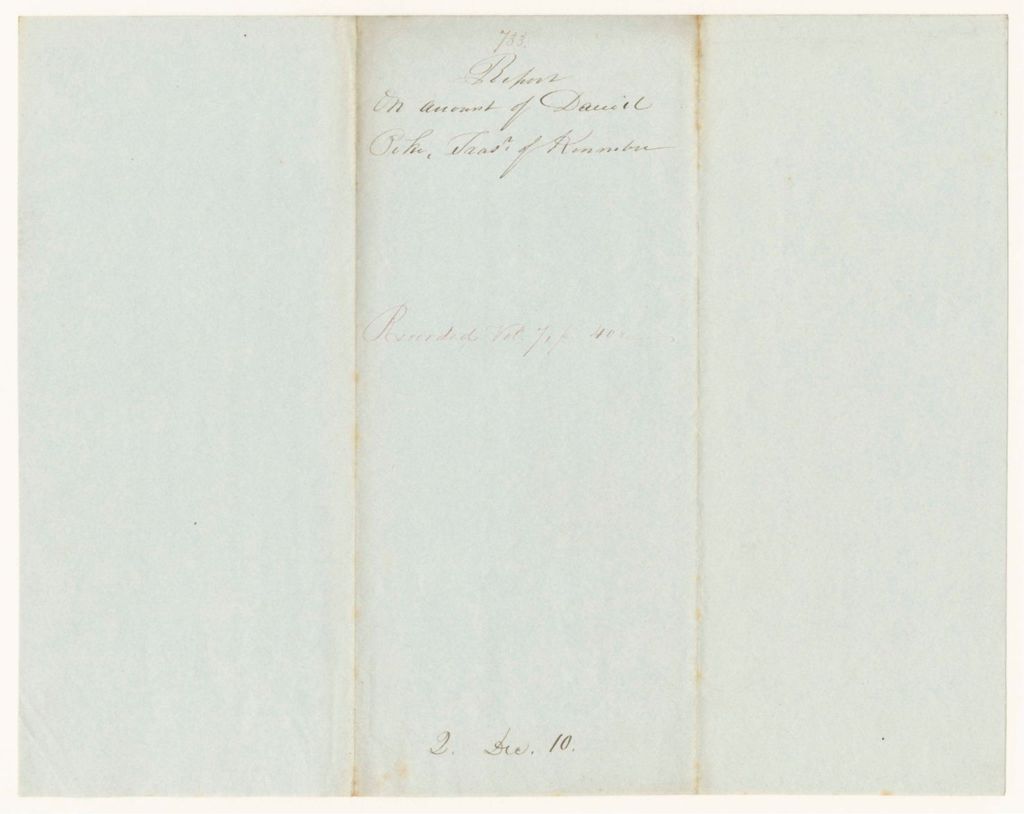 733.
Report
On account of Daniel
Pike, Treasr. of Kennebec
Recorded Vol. 7, p. 40
2. Dec. 10.